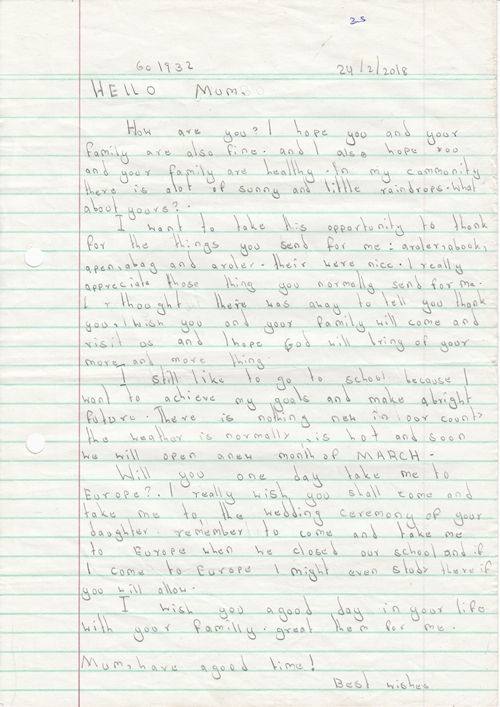 25
Go 1932 24/2/2018
HELLO Mum,
How are you? I hope you and your
family are also fine. and I also hope you
and your family are healthy. In my community
there is alot of sunny and little raindrops. What
about yours?.
I want to take this opportunity to thank
for the things you send for me: aroler, abook,
apen, abag and aroler. their were nice. I really
appreciate those thing you normally send for me.
I thought there was away to tell you thank
you, I wish you and your family will come and
visit us and I hope God will bring of your
more and more thing.
I still like to go to school because I
want to achieve my goals and make abright
future. There is nothing new in our county
the weather is normally is hot and soon
we will open anew month of MARCH.
Will you one day take me to
Europe?. I really wish you shall come and
take me to the wedding ceremony of your
daughter. remember to come and take me
to Europe when we closed our school and if
I come to Europe I might even study there if
you will allow.
I wish you agood day in your life
with your familly. great them for me.
Mum, have agood time!
Best wishes